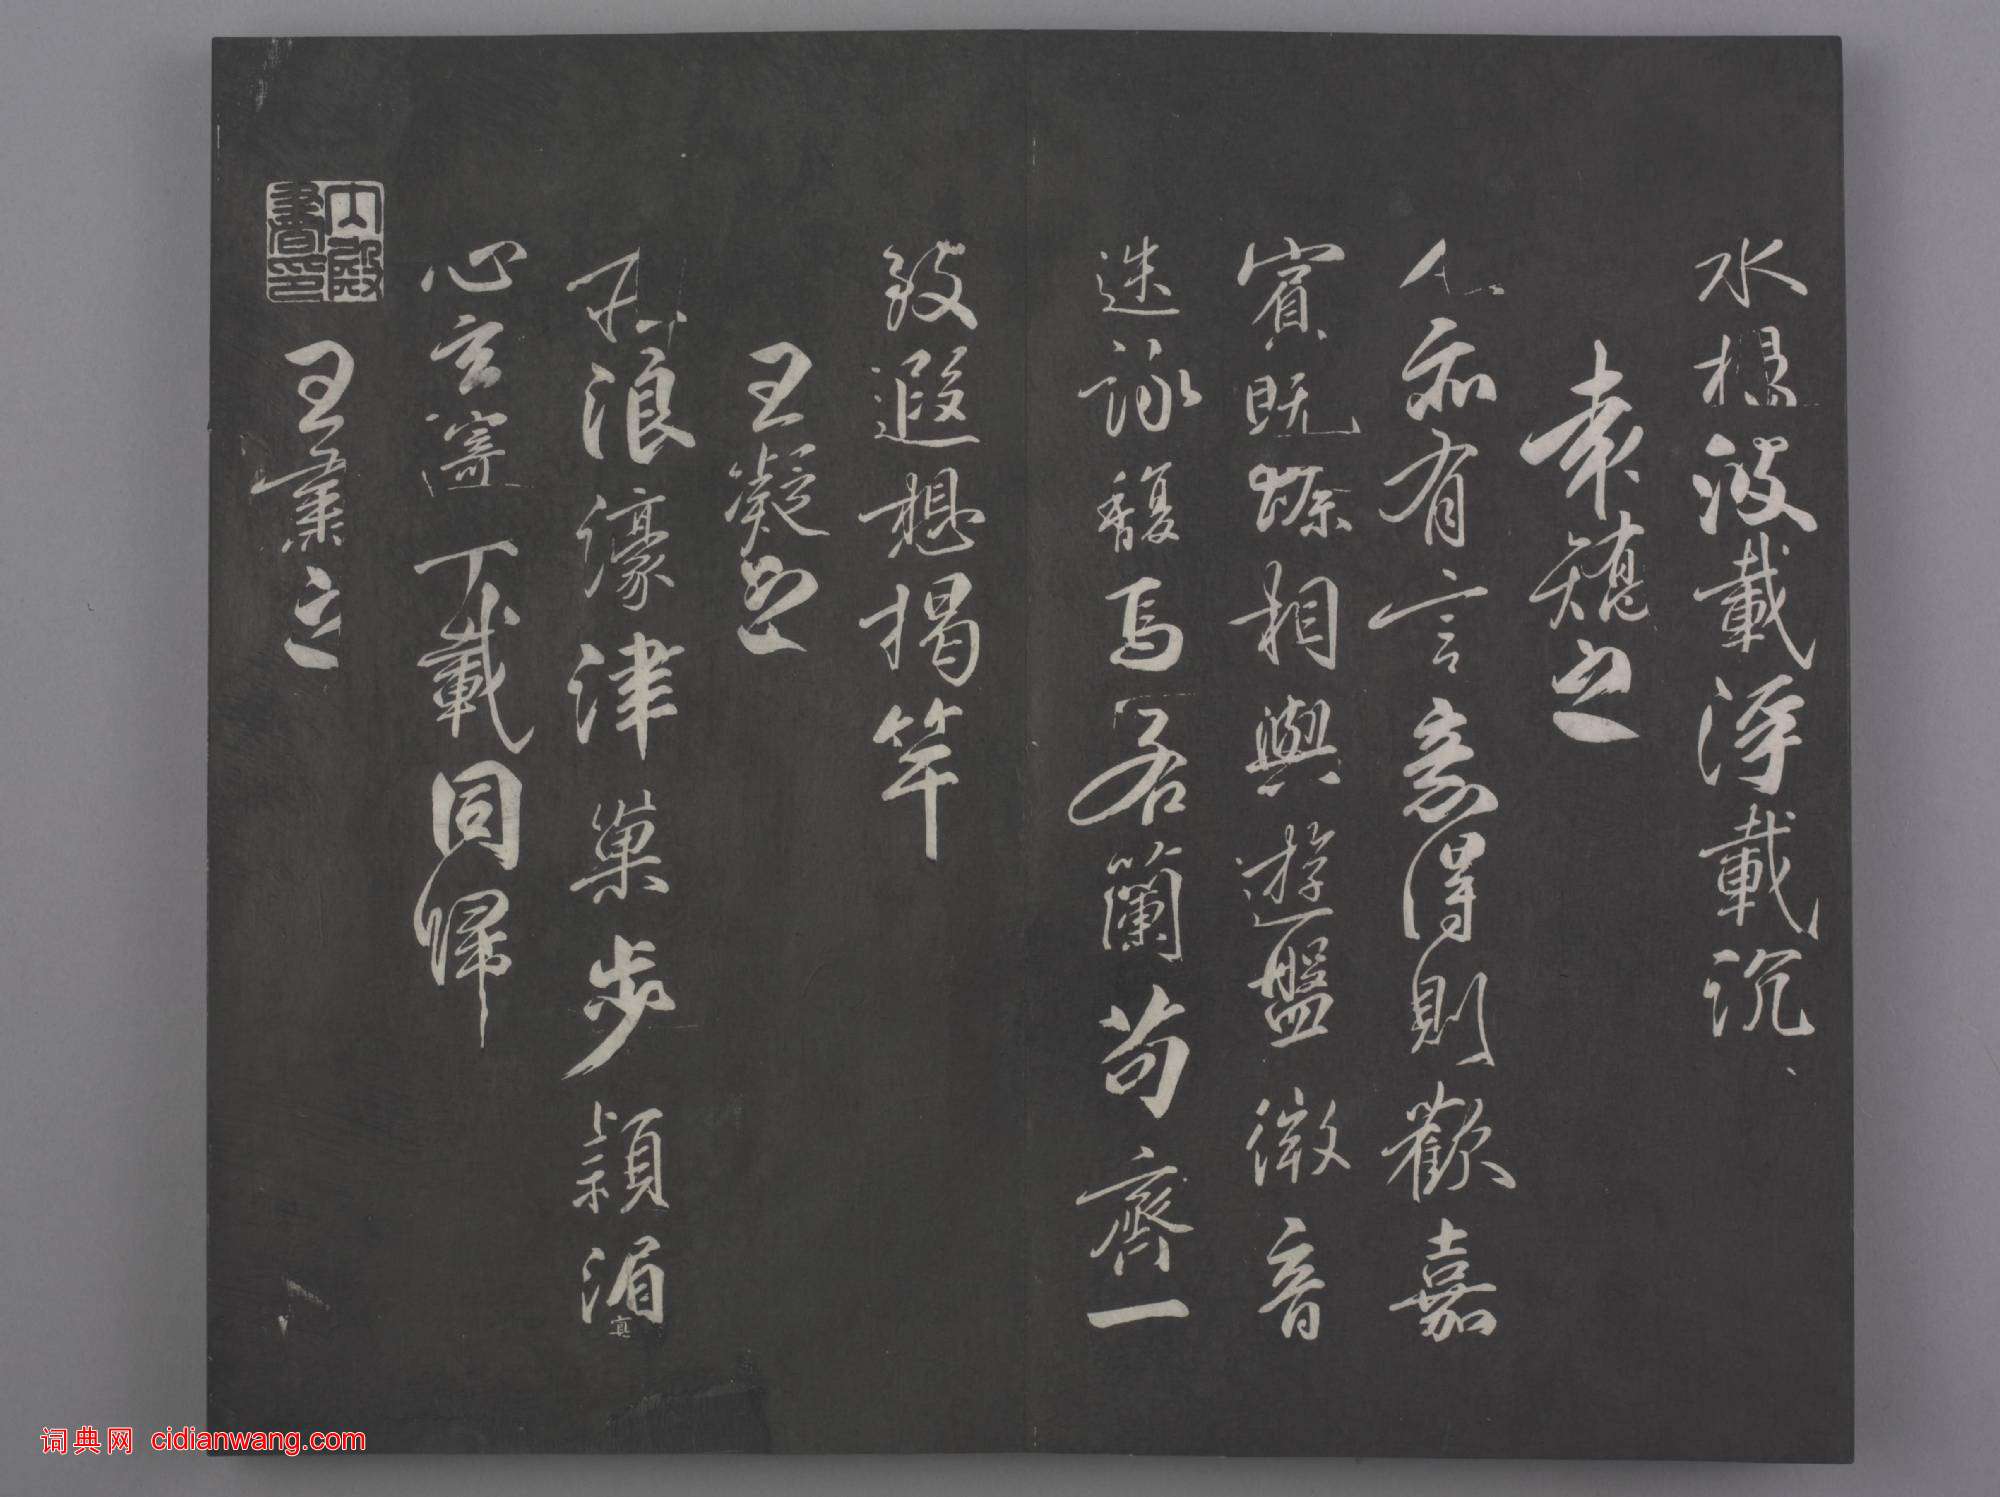 水揚波載浮載沉
袁矯之
人亦有言意得則歡嘉
賓既臻相與遊盤微音
迭詠馥焉若蘭苟齊一
致遐想揭竿
王凝之
莊浪濠津巢步潁湄
心玄寄千載同歸
內殿書印
王肅之
词典网 cidianwang.com